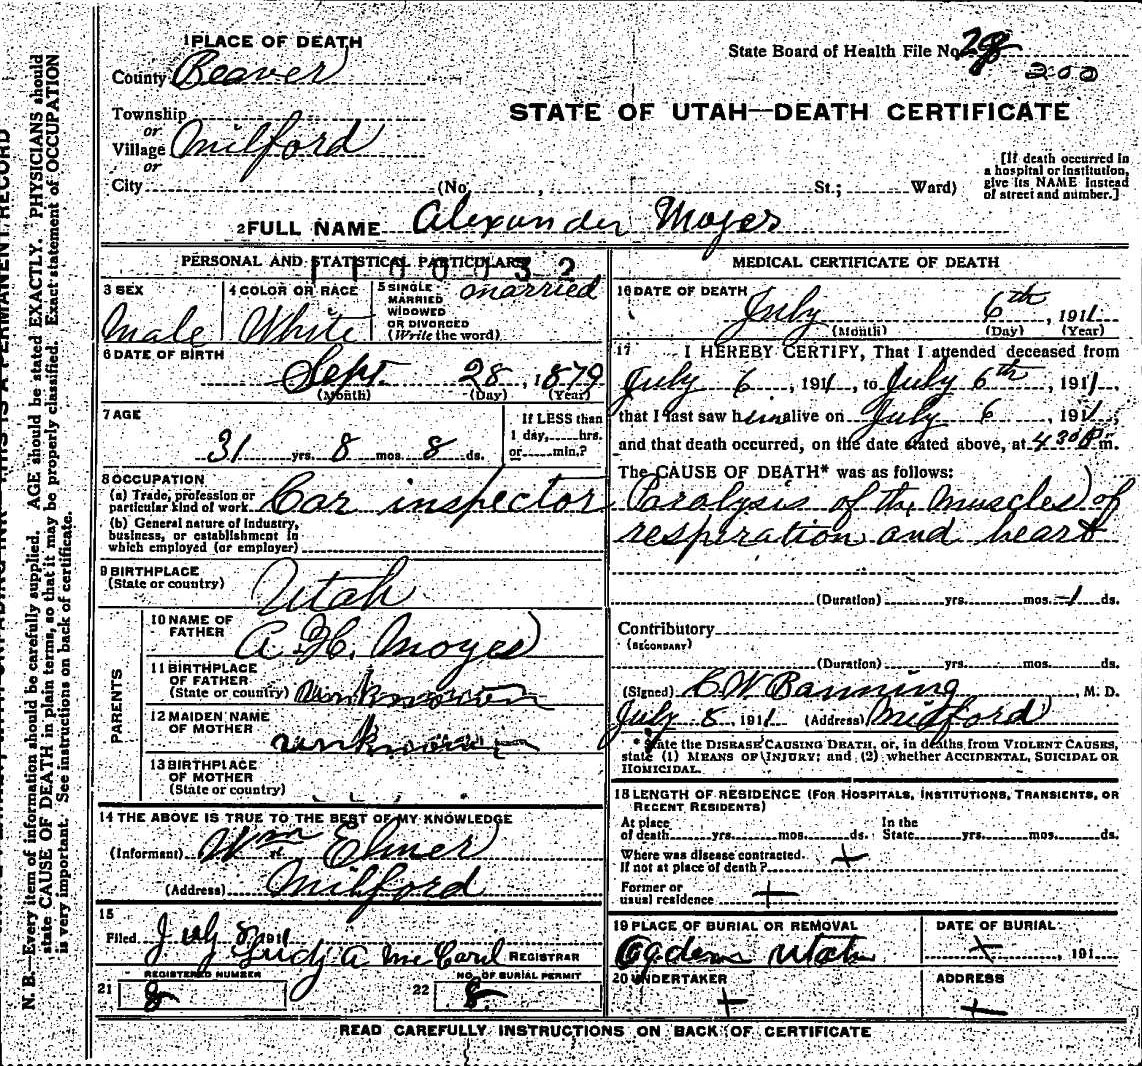 1 PLACE OF DEATH
County Beaver
State Board of Health File No. 28
200
STATE OF UTAH—DEATH CERTIFICATE
Township
or
Village Milford
or
City (No. , St.; Ward)
[If death occurred in
a hospital or institution,
give its NAME instead
of street and number.]
2 FULL NAME Alexander Moyes
PERSONAL AND STATISTICAL PARTICULARS
1100032
3 SEX
Male
4 COLOR OR RACE
White
5 SINGLE
MARRIED
WIDOWED
OR DIVORCED
(Write the word)
married
6 DATE OF BIRTH
Sept. 28, 1879
(Month) (Day) (Year)
7 AGE
31 yrs. 8 mos. 8 ds.
If LESS than
1 day, hrs.
or min.?
8 OCCUPATION
(a) Trade, profession or
particular kind of work Car inspector
(b) General nature of industry,
business, or establishment in
which employed (or employer)
9 BIRTHPLACE
(State or country)
Utah
PARENTS
10 NAME OF
FATHER
A. H. Moyes
11 BIRTHPLACE
OF FATHER
(State or country) unknown
12 MAIDEN NAME
OF MOTHER
unknown
13 BIRTHPLACE
OF MOTHER
(State or country)
14 THE ABOVE IS TRUE TO THE BEST OF MY KNOWLEDGE
(Informant) Wm Elmer
(Address) Milford
15
Filed July 8, 1911
REGISTRAR
REGISTERED NUMBER
21 8
NO. OF BURIAL PERMIT
22 8
MEDICAL CERTIFICATE OF DEATH
16 DATE OF DEATH
July 6th, 1911
(Month) (Day) (Year)
17 I HEREBY CERTIFY, That I attended deceased from
July 6, 1911, to July 6th, 1911,
that I last saw him alive on July 6, 1911,
and that death occurred, on the date stated above, at 4 30 P. m.
The CAUSE OF DEATH* was as follows:
Paralysis of the muscles of
respiration and heart
(Duration) yrs. mos. 1 ds.
Contributory
(SECONDARY)
(Duration) yrs. mos. ds.
(Signed) C. W. Banning M. D.
July 8, 1911 (Address) Milford
* State the DISEASE CAUSING DEATH, or, in deaths from VIOLENT CAUSES,
state (1) MEANS OF INJURY; and (2) whether ACCIDENTAL, SUICIDAL OR
HOMICIDAL.
18 LENGTH OF RESIDENCE (FOR HOSPITALS, INSTITUTIONS, TRANSIENTS, OR
RECENT RESIDENTS)
At place
of death yrs. mos. ds. In the
State yrs. mos. ds.
Where was disease contracted.
If not at place of death?
Former or
usual residence
19 PLACE OF BURIAL OR REMOVAL
Ogden Utah
DATE OF BURIAL
, 191
20 UNDERTAKER
ADDRESS
READ CAREFULLY INSTRUCTIONS ON BACK OF CERTIFICATE
N. B.—Every item of information should be carefully supplied. AGE should be stated EXACTLY. PHYSICIANS should
state CAUSE OF DEATH in plain terms, so that it may be properly classified. Exact statement of OCCUPATION
is very important. See instructions on back of certificate.
THIS IS A PERMANENT RECORD